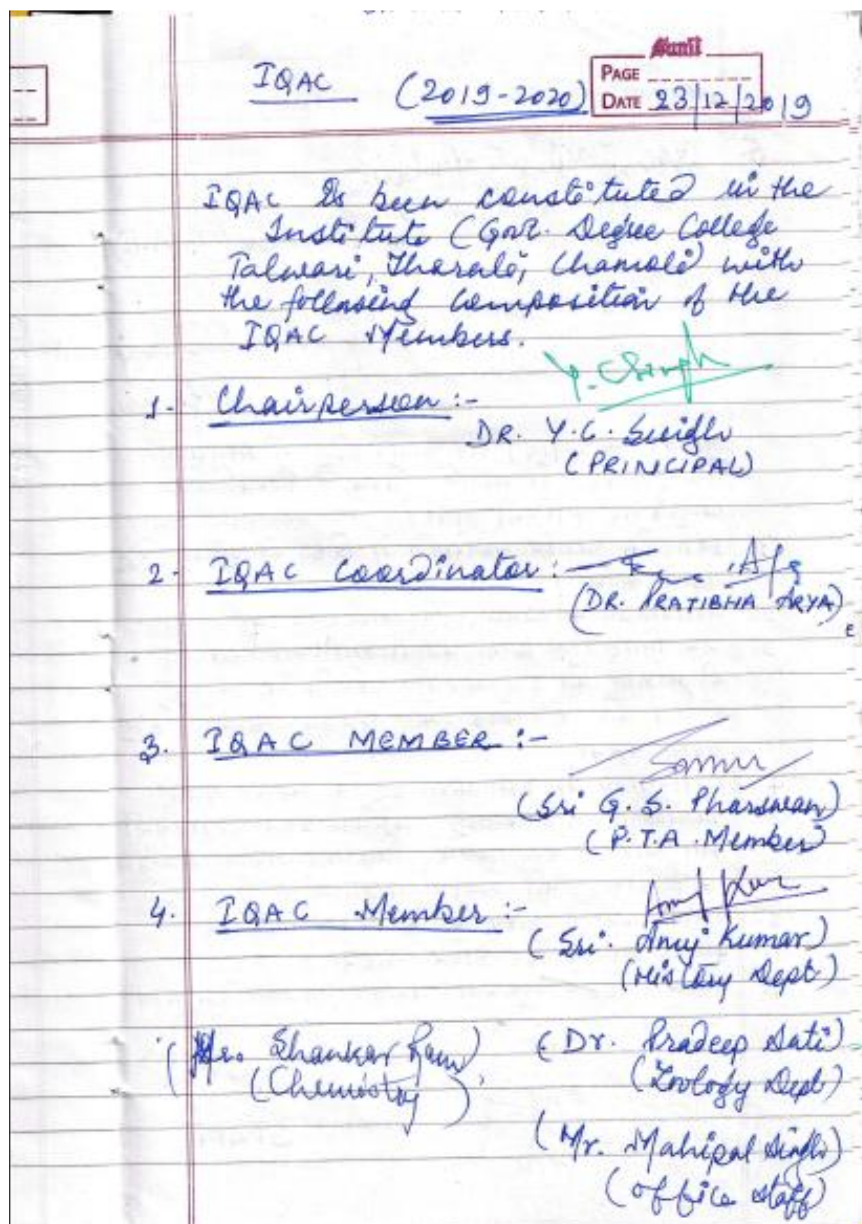 Sunil
PAGE
IQAC (2019-2020) DATE 23/12/2019
IQAC is been constituted in the
Institute (Govt. Degree College
Talwari, Tharali, Chamoli) with
the following composition of the
IQAC Members.
Y. C Singh
1- Chairperson :-
DR. Y.C. Singh
(PRINCIPAL)
2- IQAC Coordinator :-
(DR. PRATIBHA ARYA)
3. IQAC MEMBER :-
(Sri G. S. Pharswan)
(P.T.A. Member)
4. IQAC Member :-
(Sri. Anuj Kumar)
(History Dept)
(Mr. Shankar Ram) (Dr. Pradeep Sati)
(Chemistry) (Zoology Dept)
(Mr. Mahipal Singh)
(office staff)